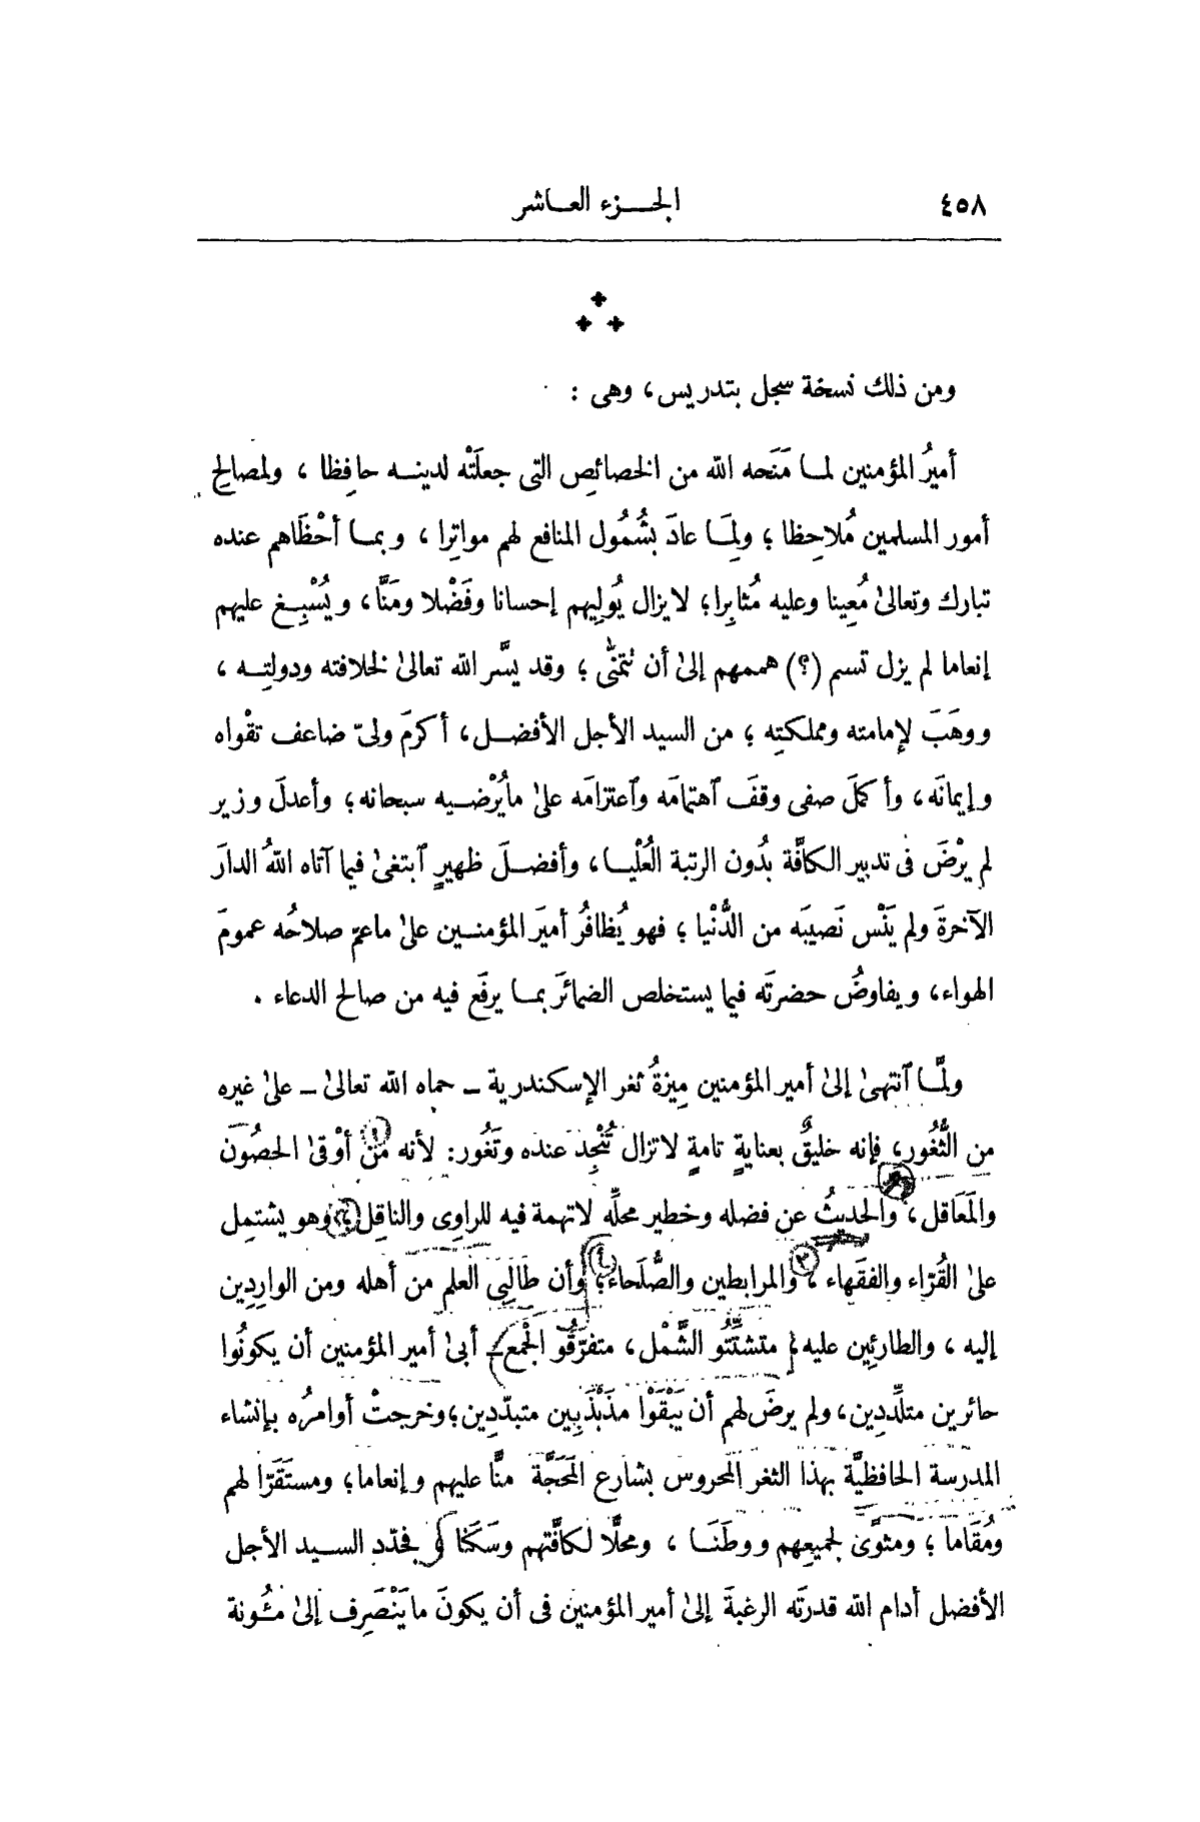 ٤٥٨
الجزء العاشر
ومن ذلك نسخة سجل بتدريس، وهى :
أميرُ المؤمنين لما مَنَحه الله من الخصائصِ التى جعلَتْه لدينه حافِظا ، ولمصالِحِ
أمور المسلمين مُلاحِظا ؛ ولِمَا عادَ بشُمُول المنافع لهم مواتِرا ، وبما أحْظَاهم عنده
تبارك وتعالىٰ مُعِينا وعليه مُثابِرا؛ لايزال يُولِيهم إحسانا وفَضْلا ومَنًّا، ويُسْبِغ عليهم
إنعاما لم يزل تسم (؟) هممهم إلىٰ أن تتمنّٰى ؛ وقد يسَّر الله تعالىٰ لخلافته ودولتِه ،
ووهَبَ لإمامته ومملكتِه ؛ من السيد الأجل الأفضل، أكرمَ ولىّ ضاعف تقْواه
وإيمانَه، وأكملَ صفى وقفَ ٱهتمامَه وٱعتزامَه علىٰ مايُرْضيه سبحانه؛ وأعدلَ وزير
لم يرْضَ فى تدبير الكافَّة بدُون الرتبة العُلْيا، وأفضلَ ظهيرٍ ٱبتغىٰ فيما آتاه اللهُ الدارَ
الآخرةَ ولم يَنْس نَصيبَه من الدُّنْيا ؛ فهو يُظافرُ أميرَ المؤمنين علىٰ ماعمّ صلاحُه عمومَ
الهواء، ويفاوضُ حضرتَه فيما يستخلص الضمائرَ بما يرفَع فيه من صالح الدعاء .
ولمَّا ٱنتهىٰ إلىٰ أمير المؤمنين مِيزةُ ثغر الإسكندرية ــ حماه الله تعالىٰ ــ علىٰ غيره
من الثُّغُور، فإنه خليقٌ بعنايةٍ تامةٍ لاتزال تُنْجِد عنده وتَغُور: لأنه من أوْقىٰ الحصُون
والمَعَاقل، والحديثُ عن فضله وخطير محلِّه لاتهمة فيه للراوِى والناقِل؛ وهو يشتمِل
علىٰ القُرّاء والفقَهاء ، والمرابطين والصُّلَحاء؛ وأن طالِبِى العلم من أهله ومن الوارِدِين
إليه ، والطارئين عليه، متشتِّتُو الشَّمْل، متفرّقُو الجْمع أبىٰ أمير المؤمنين أن يكونُوا
حائرين متلّددِين، ولم يرضَ لهم أن يَبْقَوْا مذَبْذَبِين متبدّدِين؛ وخرجتْ أوامرُه بإنشاء
المدرسة الحافظيَّة بهذا الثغر المحروس بشارع المَحَجَّة منًّا عليهم وإنعاما؛ ومستَقَرّا لهم
ومُقَاما ؛ ومثوًى لجميعِهم ووطَنَا ، ومحلًّا لكافَّتهم وسَكَنا فجدّد السيد الأجل
الأفضل أدام الله قدرتَه الرغبةَ إلىٰ أمير المؤمنين فى أن يكونَ ما يَنْصَرِف إلىٰ مئُونة